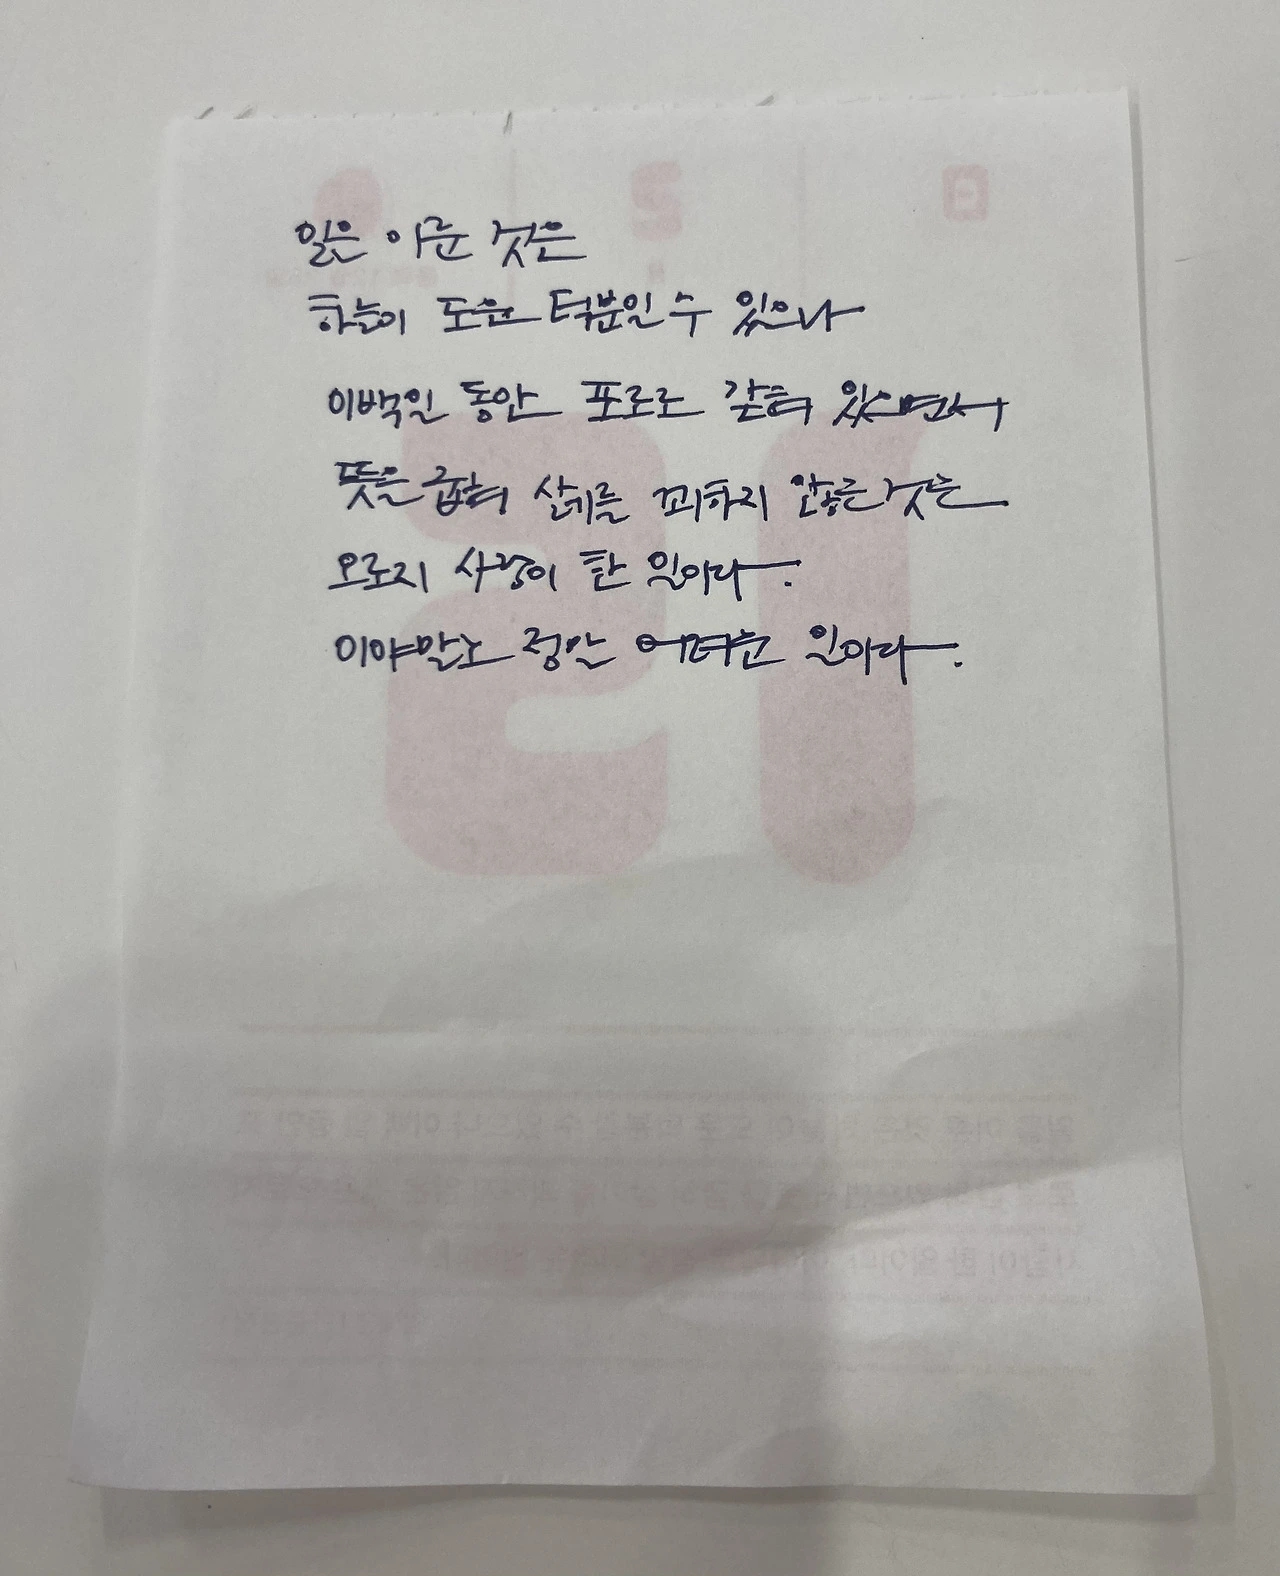 일은 이룬 것은
하늘이 도운 덕분일 수 있으나
이백일 동안 포로로 갇혀 있으면서
뜻을 굽혀 살기를 꾀하지 않은 것은
오로지 사람이 한 일이다.
이야말로 정말 어려운 일이다.